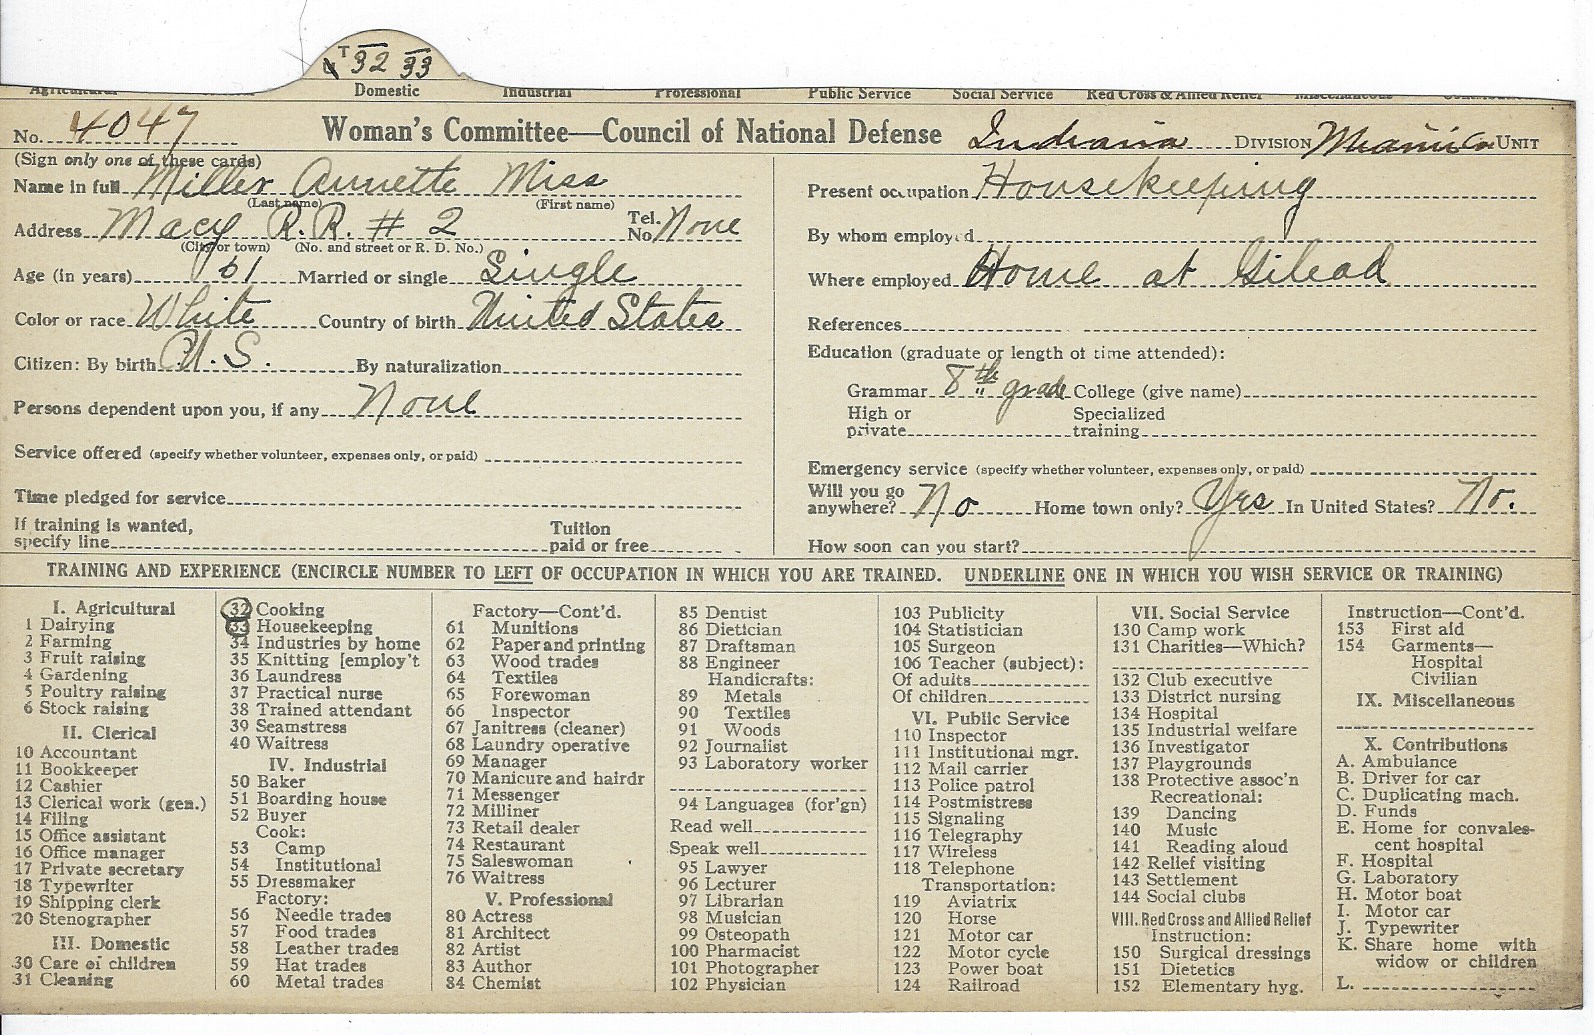 T 32 33
Agricultural Domestic Industrial Professional Public Service Social Service Red Cross & Allied Relief Miscellaneous
No. 4047 Woman's Committee—Council of National Defense Indiana DIVISION Miami Co UNIT
(Sign only one of these cards)
Name in full Miller Annette Miss
(Last name) (First name)
Address Macy R.R. # 2 Tel. No. None
(City or town) (No. and street or R. D. No.)
Age (in years) 61 Married or single Single
Color or race White Country of birth United States
Citizen: By birth U.S. By naturalization
Persons dependent upon you, if any None
Service offered (specify whether volunteer, expenses only, or paid)
Time pledged for service
If training is wanted, Tuition
specify line paid or free
Present occupation Housekeeping
By whom employed
Where employed Home at Gilead
References
Education (graduate or length of time attended):
Grammar 8th grade College (give name)
High or Specialized
private training
Emergency service (specify whether volunteer, expenses only, or paid)
Will you go
anywhere? No Home town only? Yes In United States? No.
How soon can you start?
TRAINING AND EXPERIENCE (ENCIRCLE NUMBER TO LEFT OF OCCUPATION IN WHICH YOU ARE TRAINED. UNDERLINE ONE IN WHICH YOU WISH SERVICE OR TRAINING)
I. Agricultural
1 Dairying
2 Farming
3 Fruit raising
4 Gardening
5 Poultry raising
6 Stock raising
II. Clerical
10 Accountant
11 Bookkeeper
12 Cashier
13 Clerical work (gen.)
14 Filing
15 Office assistant
16 Office manager
17 Private secretary
18 Typewriter
19 Shipping clerk
20 Stenographer
III. Domestic
30 Care of children
31 Cleaning
32 Cooking
33 Housekeeping
34 Industries by home
35 Knitting [employ't
36 Laundress
37 Practical nurse
38 Trained attendant
39 Seamstress
40 Waitress
IV. Industrial
50 Baker
51 Boarding house
52 Buyer
Cook:
53 Camp
54 Institutional
55 Dressmaker
Factory:
56 Needle trades
57 Food trades
58 Leather trades
59 Hat trades
60 Metal trades
Factory—Cont'd.
61 Munitions
62 Paper and printing
63 Wood trades
64 Textiles
65 Forewoman
66 Inspector
67 Janitress (cleaner)
68 Laundry operative
69 Manager
70 Manicure and hairdr
71 Messenger
72 Milliner
73 Retail dealer
74 Restaurant
75 Saleswoman
76 Waitress
V. Professional
80 Actress
81 Architect
82 Artist
83 Author
84 Chemist
85 Dentist
86 Dietician
87 Draftsman
88 Engineer
Handicrafts:
89 Metals
90 Textiles
91 Woods
92 Journalist
93 Laboratory worker
94 Languages (for'gn)
Read well
Speak well
95 Lawyer
96 Lecturer
97 Librarian
98 Musician
99 Osteopath
100 Pharmacist
101 Photographer
102 Physician
103 Publicity
104 Statistician
105 Surgeon
106 Teacher (subject):
Of adults
Of children
VI. Public Service
110 Inspector
111 Institutional mgr.
112 Mail carrier
113 Police patrol
114 Postmistress
115 Signaling
116 Telegraphy
117 Wireless
118 Telephone
Transportation:
119 Aviatrix
120 Horse
121 Motor car
122 Motor cycle
123 Power boat
124 Railroad
VII. Social Service
130 Camp work
131 Charities—Which?
132 Club executive
133 District nursing
134 Hospital
135 Industrial welfare
136 Investigator
137 Playgrounds
138 Protective assoc'n
Recreational:
139 Dancing
140 Music
141 Reading aloud
142 Relief visiting
143 Settlement
144 Social clubs
VIII. Red Cross and Allied Relief
Instruction:
150 Surgical dressings
151 Dietetics
152 Elementary hyg.
Instruction—Cont'd.
153 First aid
154 Garments—
Hospital
Civilian
IX. Miscellaneous
X. Contributions
A. Ambulance
B. Driver for car
C. Duplicating mach.
D. Funds
E. Home for convales-
cent hospital
F. Hospital
G. Laboratory
H. Motor boat
I. Motor car
J. Typewriter
K. Share home with
widow or children
L.